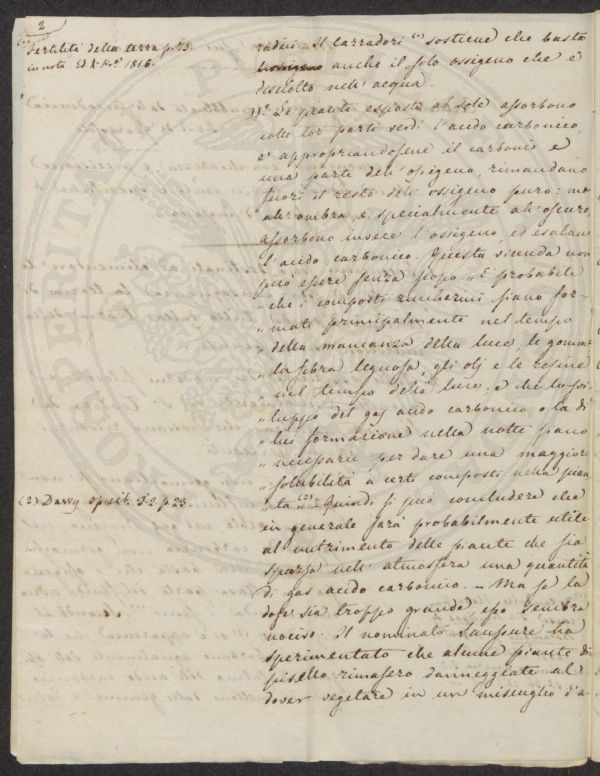 2
(1) Fertilità della terra p. 73.
in nota. Ed.
1816.
radici. Il Carradori (1) sostiene che basta
anche il solo ossigeno che è
disciolto nell'acqua.
11°. Le piante esposte al sole assorbono
colle lor parti verdi l'acido carbonico,
e appropriandosene il carbonio e
una parte dell'ossigeno, rimandano
fuori il resto dell'ossigeno puro: ma
all'ombra, e specialmente all'oscuro,
assorbono invece l'ossigeno, ed esalano
l'acido carbonico. Questa vicenda non
può essere senza scopo. „ È probabile
„ che i composti zuccherini siano for-
„ mati principalmente nel tempo
„ della mancanza della luce, le gomme
„ la fibra legnosa, gli olj e le resine
„ nel tempo della luce. e che lo svi-
„ luppo del gas acido carbonico o la di
„ lui formazione nella notte siano
„ necessarie per dare una maggiore
„ solubilità a certi composti nella pian-
„ ta (2) „ Quindi si può concludere che
in generale sarà probabilmente utile
al nutrimento delle piante che sia
sparsa nell'atmosfera una quantità
di gas acido carbonico. _ Ma se la
dose sia troppo grande, esso sembra
nocivo. Il nominato Saussure ha
sperimentato che alcune piante di
pisello rimasero danneggiate al
dover vegetare in un miscuglio d'a-
(2) Davvy op. cit. T. 2. p. 23.